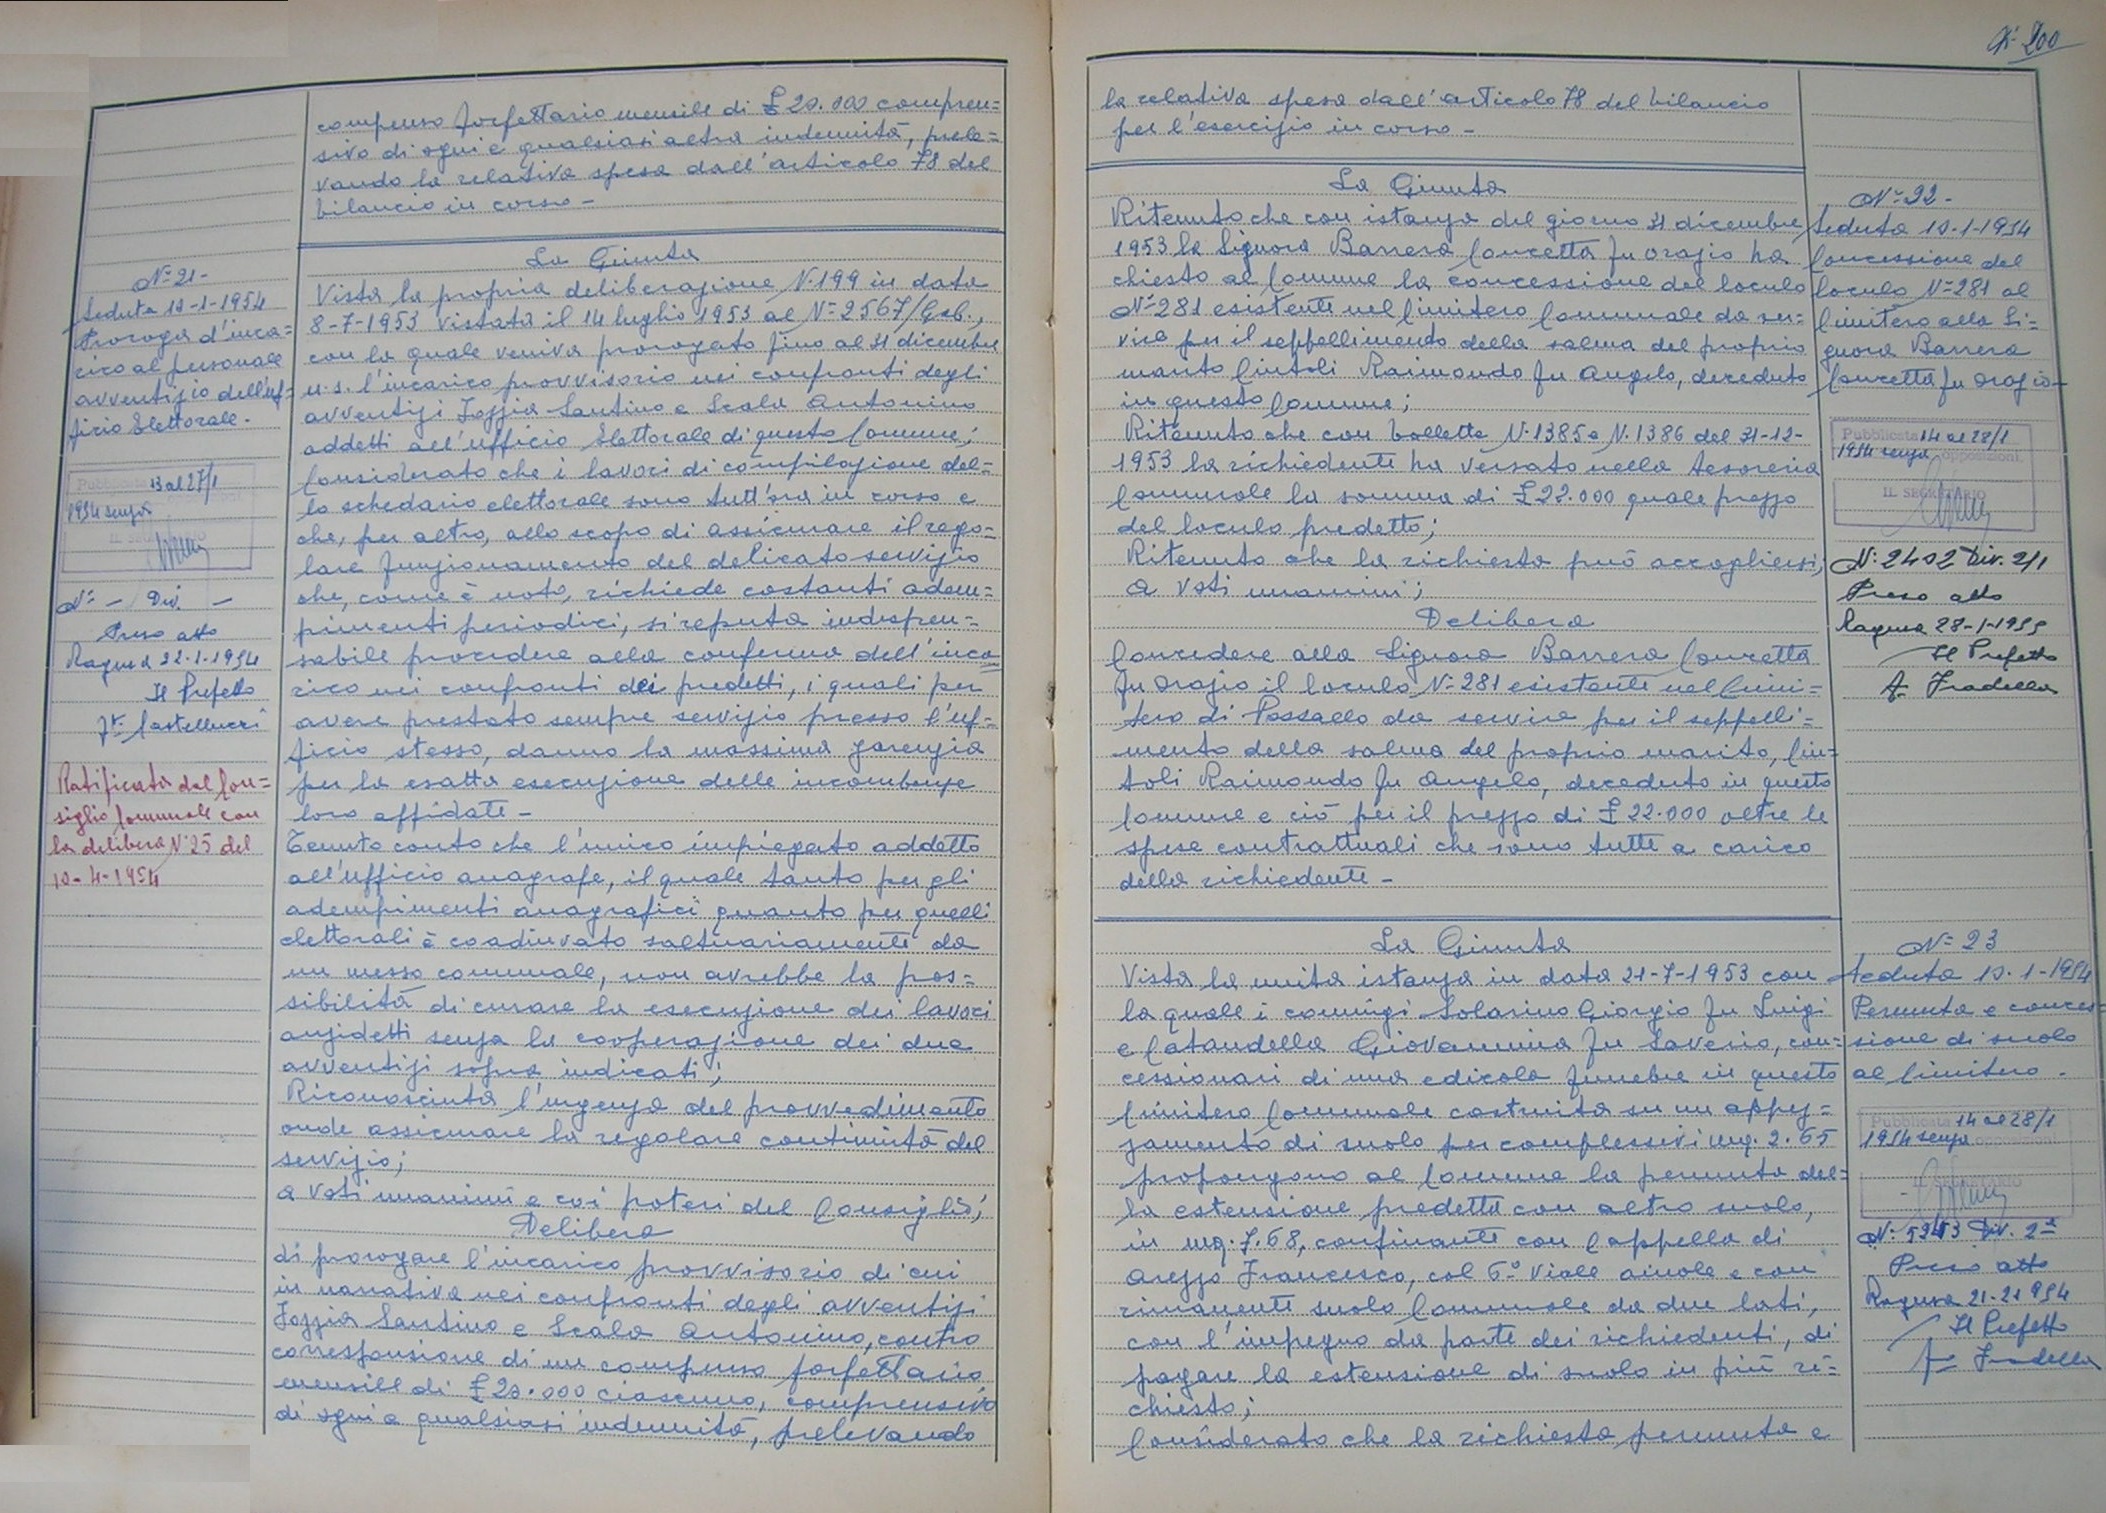 compenso forfettario mensile di £ 20.000 compren=
sivo di ogni e qualsiasi altra indennità, prele=
vando la relativa spesa dall'articolo 78 del
bilancio in corso –
N= 21 –
Seduta 10-1-1954
Proroga d'inca=
rico al personale
avventizio dell'uf=
ficio Elettorale.
Pubblicata 13 al 27/1
1954 senza opposizioni
IL SEGRETARIO
N= – Div. –
Preso atto
Ragusa 22-1-1954
Il Prefetto
Ft. Castellucci
Ratificata dal Con=
siglio Comunale con
la delibera N. 25 del
10-4-1954
La Giunta
Vista la propria deliberazione N. 199 in data
8-7-1953 vistata il 14 luglio 1953 al N= 2567/Gab.,
con la quale veniva prorogato fino al 31 dicembre
u.s. l'incarico provvisorio nei confronti degli
avventizi Iozzia Santino e Scala Antonino
addetti all'ufficio Elettorale di questo Comune;
Considerato che i lavori di compilazione del=
lo schedario elettorale sono tutt'ora in corso e
che, per altro, allo scopo di assicurare il rego=
lare funzionamento del delicato servizio
che, come è noto, richiede costanti adem=
pimenti periodici, si reputa indispen=
sabile procedere alla conferma dell'inca
rico nei confronti dei predetti, i quali per
avere prestato sempre servizio presso l'uf=
ficio stesso, danno la massima garenzia
per la esatta esecuzione delle incombenze
loro affidate –
Tenuto conto che l'unico impiegato addetto
all'ufficio anagrafe, il quale tanto per gli
adempimenti anagrafici quanto per quelli
elettorali è coadiuvato saltuariamente da
un messo comunale, non avrebbe la pos=
sibilità di curare la esecuzione dei lavori
anzidetti senza la cooperazione dei due
avventizi sopra indicati;
Riconosciuta l'urgenza del provvedimento
onde assicurare la regolare continuità del
servizio;
a voti unanimi e coi poteri del Consiglio;
Delibera
di prorogare l'incarico provvisorio di cui
in narrativa nei confronti degli avventizi
Iozzia Santino e Scala Antonino, contro
corresponsione di un compenso forfettario
mensile di £ 20.000 ciascuno, comprensivo
di ogni e qualsiasi indennità, prelevando
200
la relativa spesa dall'articolo 78 del bilancio
per l'esercizio in corso –
La Giunta
Ritenuto che con istanza del giorno 31 dicembre
1953 la Signora Barrera Concetta fu Orazio ha
chiesto al Comune la concessione del loculo
N= 281 esistente nel Cimitero Comunale da ser=
vire per il seppellimento della salma del proprio
marito Cintoli Raimondo fu Angelo, deceduto
in questo Comune;
Ritenuto che con bollette N. 1385 e N. 1386 del 31-12-
1953 la richiedente ha versato nella tesoreria
Comunale la somma di £ 22.000 quale prezzo
del loculo predetto;
Ritenuto che la richiesta può accogliersi;
a voti unanimi;
Delibera
Concedere alla Signora Barrera Concetta
fu Orazio il loculo N= 281 esistente nel Cimi=
tero di Pozzallo da servire per il seppelli=
mento della salma del proprio marito, Cin=
toli Raimondo fu Angelo, deceduto in questo
Comune e ciò per il prezzo di £ 22.000 oltre le
spese contrattuali che sono tutte a carico
della richiedente –
N= 22 –
Seduta 10-1-1954
Concessione del
loculo N= 281 al
Cimitero alla Si=
gnora Barrera
Concetta fu Orazio –
Pubblicata 14 al 28/1
1954 senza opposizioni
IL SEGRETARIO
N. 2402 Div. 2/1
Preso atto
Ragusa 28-1-1955
Il Prefetto
Ft. Fradella
La Giunta
Vista la unita istanza in data 21-7-1953 con
la quale i coniugi Solarino Giorgio fu Luigi
e Catandella Giovannina fu Saverio, con=
cessionari di una edicola funebre in questo
Cimitero Comunale costruita su un appez=
zamento di suolo per complessivi mq. 2.65
propongono al Comune la permuta del=
la estensione predetta con altro suolo,
in mq. 7.68, confinante con Cappella di
Arezzo Francesco, col 6° viale aiuole e con
rimanente suolo Comunale da due lati,
con l'impegno da parte dei richiedenti, di
pagare la estensione di suolo in più ri=
chiesto;
Considerato che la richiesta permuta e
N= 23
Seduta 10-1-1954
Permuta e conces=
sione di suolo
al Cimitero.
Pubblicata 14 al 28/1
1954 senza opposizioni
IL SEGRETARIO
Div. 2ª
Preso atto
Ragusa
Il Prefetto
Ft. Fradella